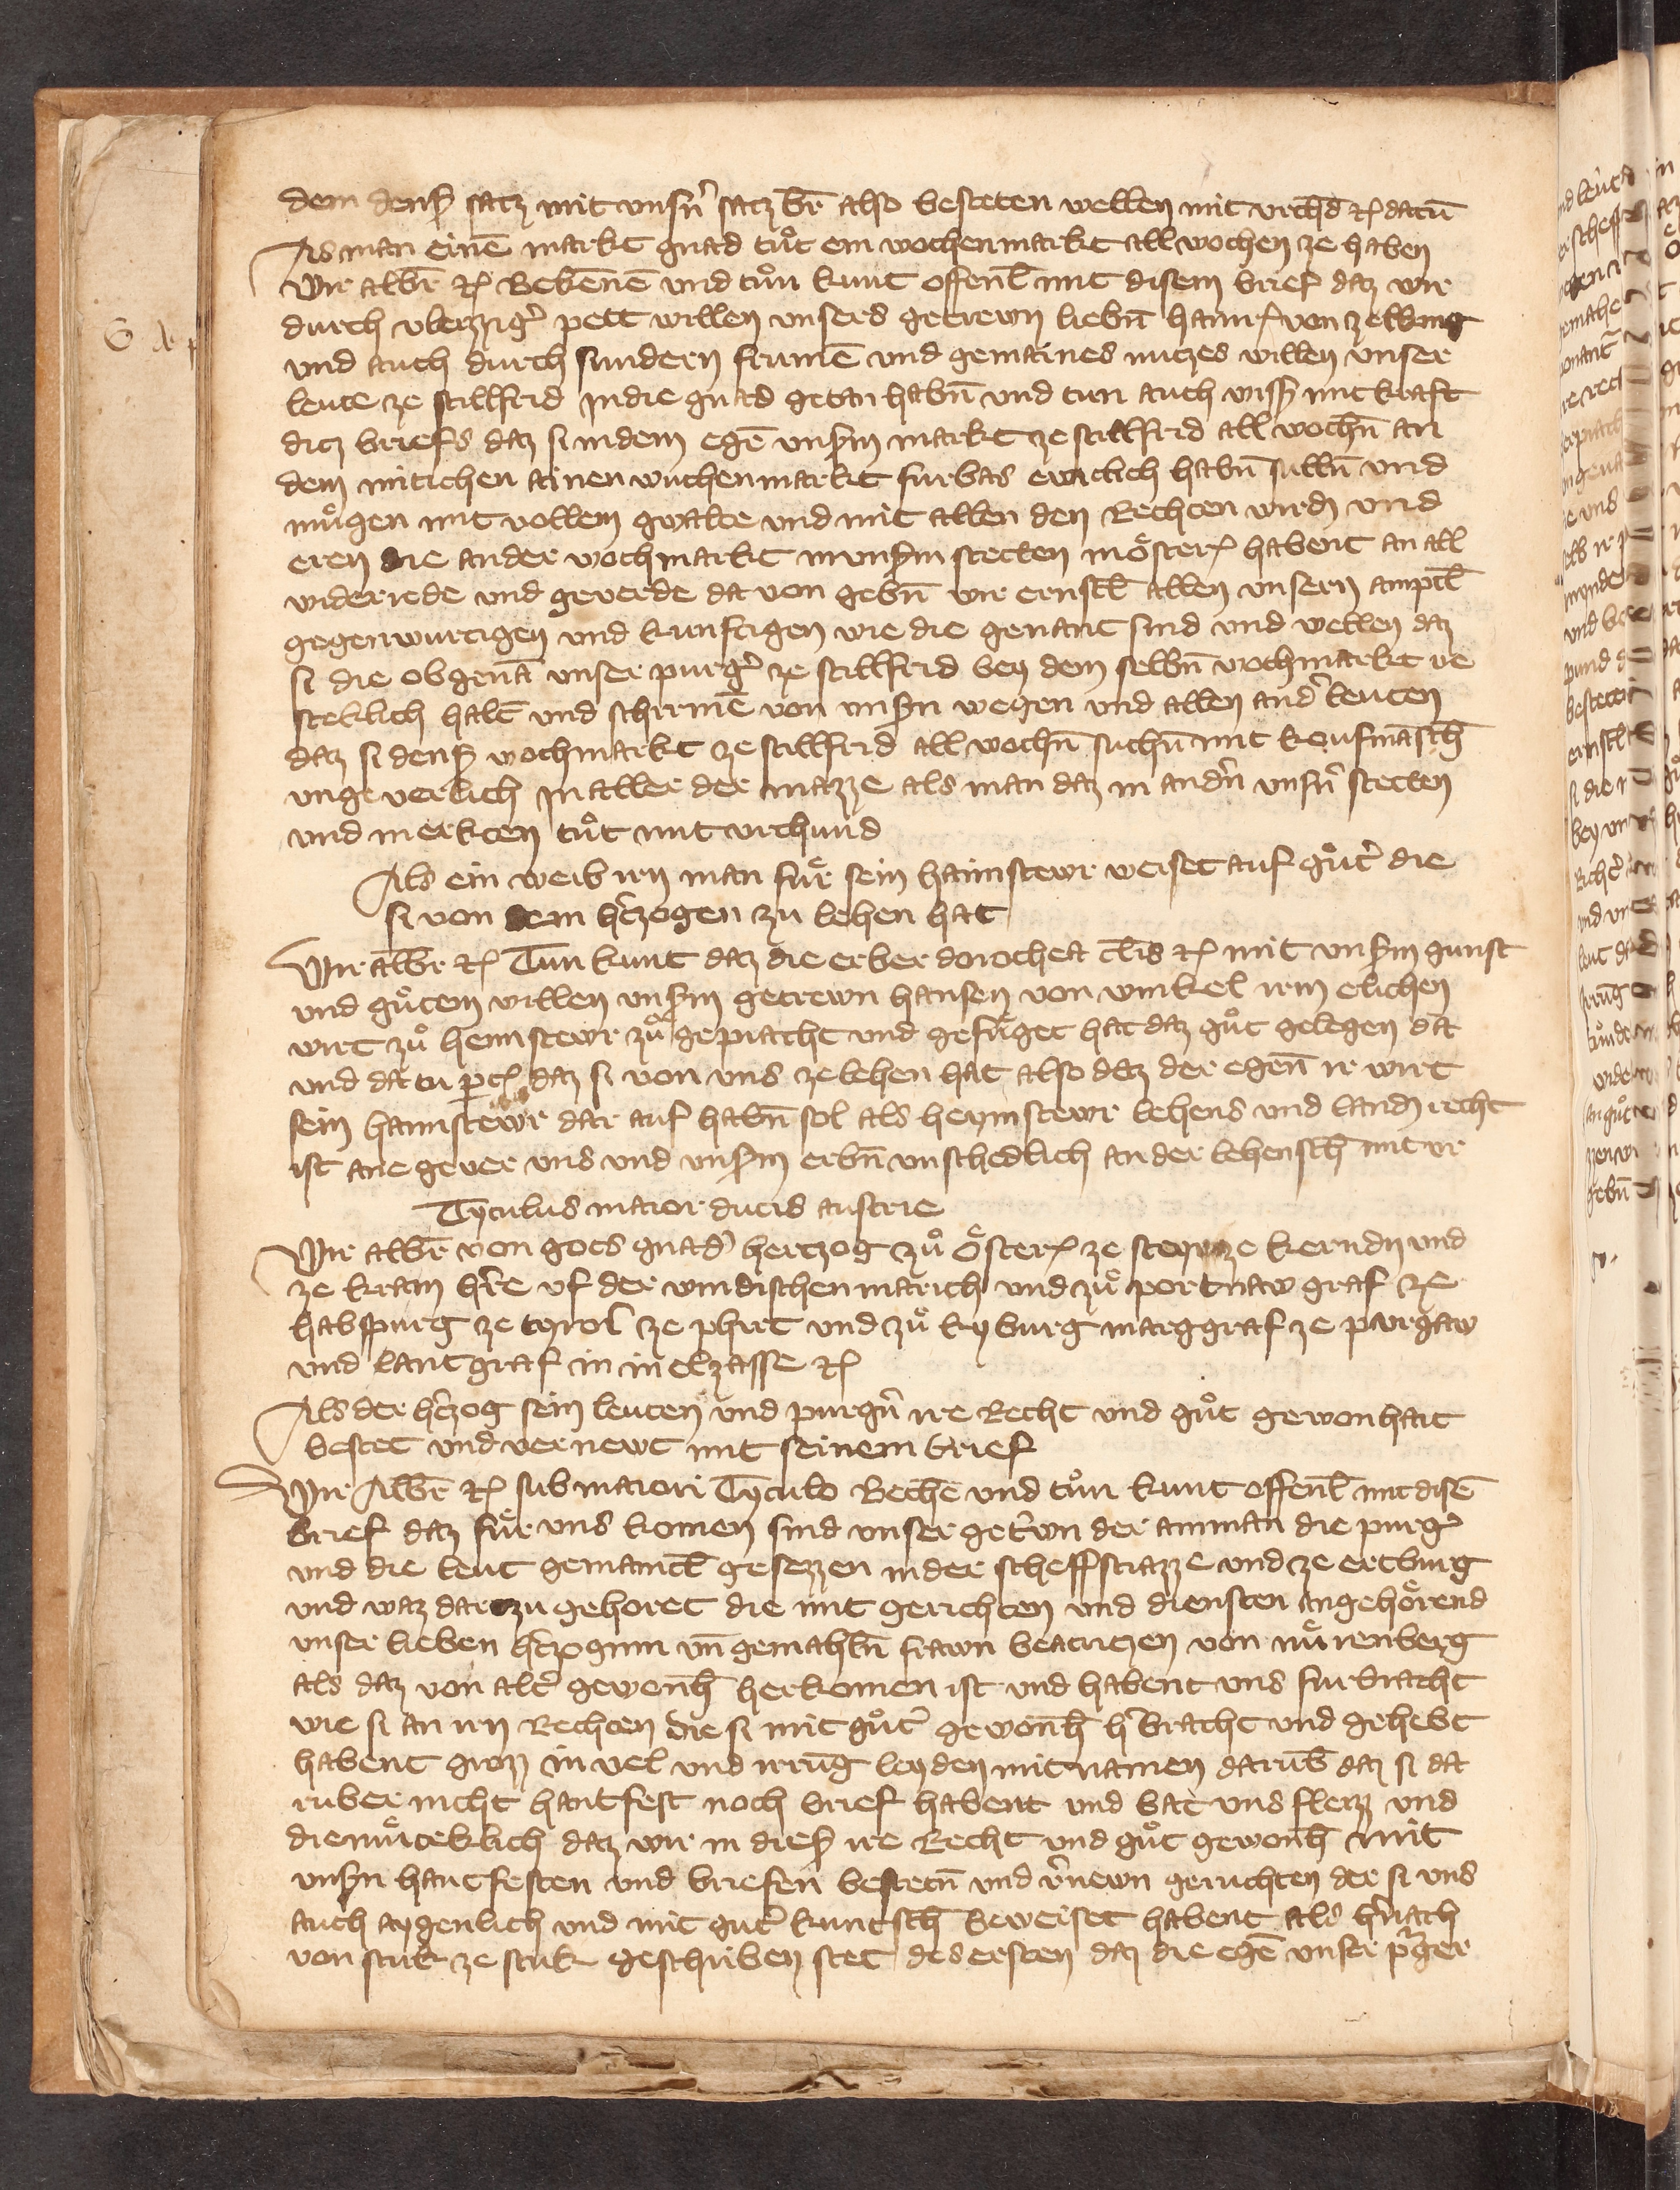 dem dens̄ satz mit unsn̄ satz br̄ also besteten wellen mit urchd̄ ꝛc datū
Als man einē markt gnad tůt ein wochenmarkt all wochen ze haben
Wir albr̄ ꝛc Bekennē und tůn kunt offenl̄ mit disem brief daz wir
durch vleizzig̉ pett willen unsers getrewn liebn̄ hainr̄ von zelking
und auch durch sundern frumē und gemaines nutzes willen unser
leute ze stillfrid in die gnad getan habn̄ und tun auch wiss̄ mit kraft
ditz briefs daz si in dem egē unsm̄ markt ze stillfrid all wochn̄ an
dem mitichen ainen wuchenmarkt furbas ewiclich habn̄ sulln̄ und
můgen mit vollem gwalte und mit allen den Rechten wirdn̄ und
eren die ander wochmarkt in unsm̄ stetten in ỏsterr̄ habent an all
widerrede und geverde da von gebn̄ wir ernstl̄ allen unsern amptl̄
gegenwurtigen und kunftigen wie die genant sind und wellen daz
si die obgenā unser purg̉ ze stillfrid bey dem selbn̄ wochmarkt ve
steklich haltē und schirmē von unsn̄ wegen und allen and̉ leuten
daz si dens̄ wochmarkt ze stillfrid all wochn̄ suchn̄ mit koufmāsch̄
ungeverlich in aller der mazze als man daz in andn̄ unsn̄ stetten
und merkten tůt mit urchund
Als ein weib irn man fůr sein haimstewr weiset auf gůt̉ die
si von dem h̉zogen zu lehen hat
Wir albr̄ ꝛc Tun kunt daz die erber dorothea t̄lis ꝛc mit unsm̄ gunst
und gůtem willen unsm̄ getrewn hansen von winkel irm elichen
wirt zů heimstewr zů gepracht und gefůget hat daz gůt gelegen da
und da tu p̄tꝭ daz si von uns ze lehen hat also daz der egen̄ ir wirt
sein haimstewr dar auf habn̄ sol als heymstewr lehens und landꝭ recht
ist ane gever uns und unsm̄ erbn̄ unschedlich an der lehensch̄ mit ur
Tytulus maior ducis austrie
Wir albr̄ von gots gnad̉ hertzog zů ỏsterr̄ ze steyr ze kerndn̄ und
ze krain h̉re uf der windischen marich und zů portnaw graf ze
habspurg ze tyrol ze phirt und zů kyburg marggraf ze purgaw
und lantgraf in in elzasse ꝛc
Als der h̉zog sein leuten und purgn̄ ire Recht und gůt gewonhait
bestet und vernewt mit seinem brief
Wir Albr̄ ꝛc sub maiori Tytulo Bechē und tůn kunt offenl̄ mit disē
brief daz fůr uns komen sind unser get̉wn der amman die purg̉
und die leut gemainl̄ gesezzen in der scheffstrazze und ze ertburg
und waz dar zu gehoret die mit gerichten und diensten angehỏrend
unser lieben h̉zoginn un̄ gemahln̄ frawn beatrizen von nůrenberg
als daz von alt̉ gewonh̄ herkomen ist und habent uns furbracht
wie si an irn Rechten die si mit gůt̉ gewonh̄ h̉bracht und gehebt
habent grozz in vel und irrūg leyden mit namen darūb daz si da
ruber nicht hantfest noch brief habent und bat uns flezz und
diemůteklich daz wir in dies̄ ire Recht und gůt gewonh̄ mit
unsn̄ hantfesten und briefen bestetn̄ und v̉newn geruchten der si uns
auch aygenlich und mit gut̉ kuntsch̄ beweiset habent als h̉nach
von stuk ze stuk geschriben stet des ersten daz die egē unser p̉ger